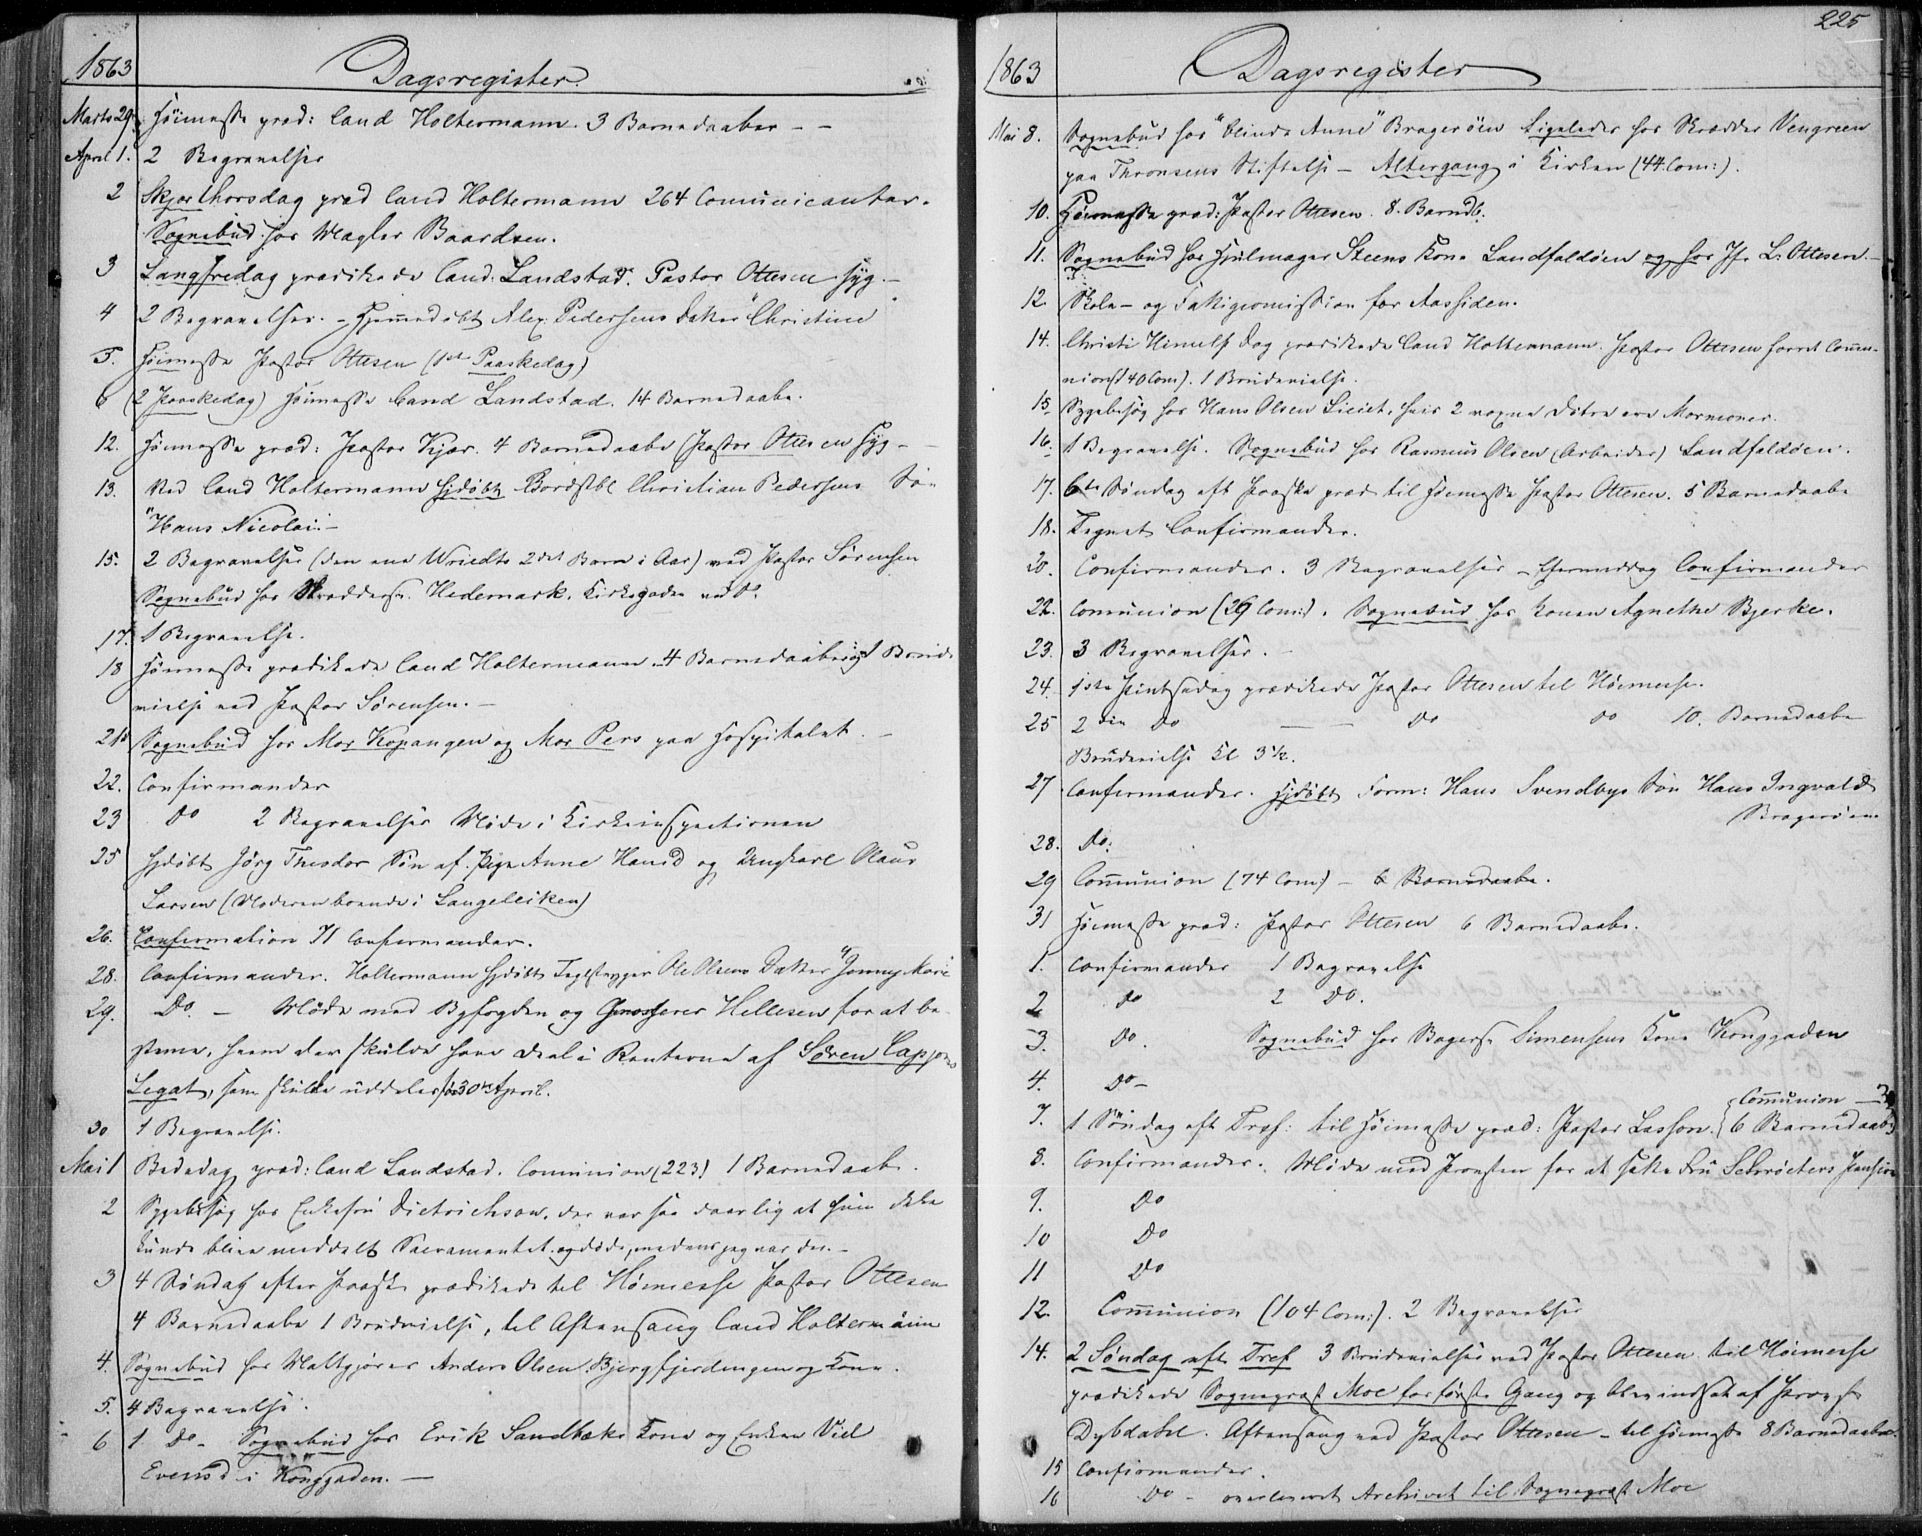 1863 Dagsregister.
Marts 29. Høimesse præd: Cand Holtermann. 3 Barnedaaber - -
April 1. 2 Begravelser
2 Skjærthorsdag præd Cand Holtermann 264 Comunicanter.
Sognebud hos Mægler Baardsen.
3 Langfredag prædikede Cand: Landstad. Pastor Ottesen syg. -
4 2 Begravelser. - Hjemmedøbt Alex. Pedersens Datter "Christine"
5. Høimesse Pastor Ottesen (1ste Paaskedag)
6 (2 Paaskedag) Høimesse Cand Landstad. 14 Barnedaabe.
12. Høimesse præd: Pastor Kjær. 4 Barnedaabe (Pastor Ottesen syg -
13. Ved Cand Holtermann hjdøbt Bordstbl Christian Pedersens Søn
"Hans Nicolai" -
15. 2 Begravelser (den ene Wriedts 2det Barn i Aar) ved Pastor Sørensen
Sognebud hos Skreddersv. Hedemark. Kirkegaden ved Do
17. 1 Begravelse.
18 Høimesse prædikede Cand Holtermann. 4 Barnedaabe og 1 Brude-
vielse ved Pastor Sørensen. -
21 Sognebud hos Mor Kopangen og Mor Pers paa Hospitalet. -
22. Confirmander
23 Do 2 Begravelser Møde i Kirkeinspectionen
25 Hjdøbt Jörg Theodor Søn af Pige Anne Hansd og Ungkarl Olaus
Larsen (Moderen boende i Langelliken)
26. Confirmation 71 Confirmander.
28. Confirmander. Holtermann hjdøbt Teglstryger Ole Olsens Datter "Jenny Marie
29. Do - Møde med Byfogden og Grosserer Hellesen for at be-
stemme, hvem der skulde have Deel i Renterne af Søren Cappens
Legat, som skulde uddeles den 30te April.
30 1 Begravelse.
Mai 1 Bededag præd: Cand Landstad. Comunion (223) 1 Barnedaab.
2 Sygebesøg hos Enkefru Dietrichson, der var saa daarlig at hun ikke
kunde blive meddelt Sacramentet og døde, medens jeg var der. -
3 4 Søndag efter Paaske prædikede til Høimesse Pastor Ottesen
4 Barnedaabe 1 Brudevielse, til Aftensang Cand Holtermann
4. Sognebud hos Maltgjører Anders Olsen, Bjergfjerdingen og Kone.
5. 4 Begravelse.
6 1 Do - Sognebud hos Erik Sandbæks Kone og Enken Viel
Evensd i Konggaden. -
225
1863 Dagsregister
Mai 8. Sognebud hos "blinde Anne" Bragerøen Ligeledes hos Skrædder Vengreen
paa Thronsens Stiftelse - Altergang i Kirken (44 Com:).
10. Høimesse præd: Pastor Ottesen. 8. Barndb.
11. Sognebud hos Hjulmager Steens Kone Landfaldøen og hos Jfr L. Ottesen. -
12. Skole- og Fattigcomission for Aassiden.
14. Christi Himmelf. dag prædikede Cand Holtermann. Pastor Ottesen forret Comu-
nion (40 Com). 1 Brudevielse.
15. Sygebesøg hos Hans Olsen Liciet, hvis 2 voxne Døtre ere Mormoner.
16. 1 Begravelse. Sognebud hos Rasmus Olsen (Arbeider) Landfaldøen.
17. 6te Søndag eft Paaske præd til Høimesse Pastor Ottesen. 5 Barnedaabe
18. Tegnet Confirmander.
20. Confirmander. 3 Begravelser - Eftermiddag Confirmander
22. Comunion (29 Com:). Sognebud hos Konen Agnethe Bjerke.
23. 3 Begravelser.
24. 1ste Pintsedag prædikede Pastor Ottesen til Høimesse.
25 2den Do — Do Do 10. Barnedaabe
Brudevielse Kl 3½.
27 Confirmander. Hjdøbt Form: Hans Svendbys Søn Hans Ingvald
Bragerøen
28. Do.
29 Comunion (74 Com:) - 6 Barnedaabe.
31 Høimesse præd: Pastor Ottesen 6 Barnedaabe.
1. Confirmander 1 Begravelse
2 do 2 Do.
3. Do. Sognebud hos Bagersv. Simensens Kone Konggaden
4. Do -
Communion - 3
7. 1 Søndag eft Tref: til Høimesse præd: Pastor Lasson. 6 Barnedaabe
8. Confirmander. Møde med Provsten for at sætte Fru Schrøeters Pension
9. Do
10 Do
11 Do
12. Comunion (104 Com:). 2 Begravelser
14. 2 Søndag eft Tref 3 Brudevielser ved Pastor Ottesen til Høimesse
prædikede Sognepræst Moe for første Gang og blev indsat af Provst
Dybdahl. Aftensang ved Pastor Ottesen - til Høimesse 8 Barnedaabe.
15 Confirmander.
16 Do - overleveret Archivet til Sognepræst Moe